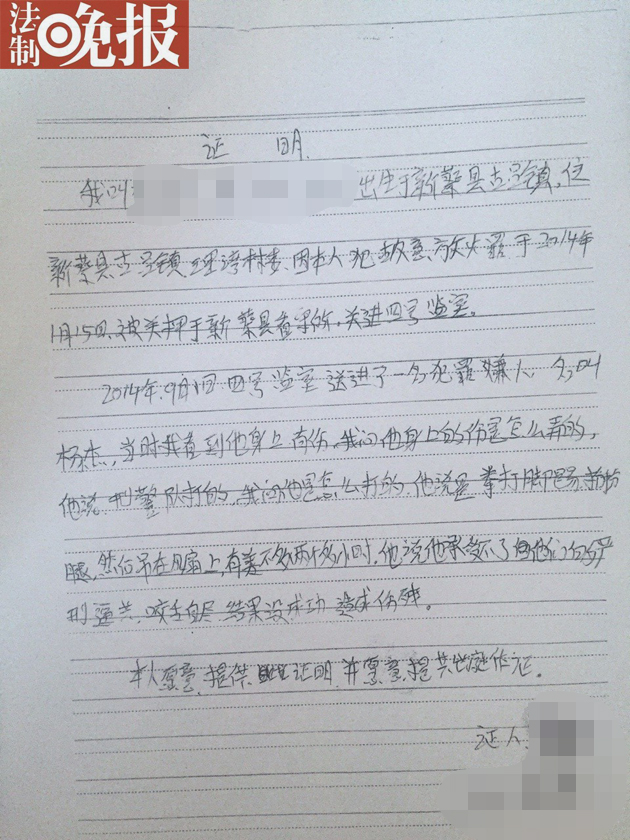 法制晚报
证 明
我叫 出生于新蔡县古吕镇,住
新蔡县古吕镇 楼、因本人犯故意放火罪于2014年
1月15日、被关押于新蔡县看守所,关进四号监室。
2014年、9月1日四号监室送进了一名犯罪嫌人、名叫
杨杰,当时我看到他身上有伤、我问他身上的伤是怎么弄的,
他说刑警队打的、我问他是怎么打的、他说是拳打脚踢、
腿、然后吊在风扇上,有差不多两个多小时、他说他承受不了 他们的严
刑逼共、咬舌自尽 结果没成功 造成伤残。
本人愿意、提供 证明、并愿意、提共出庭作证。
证人、